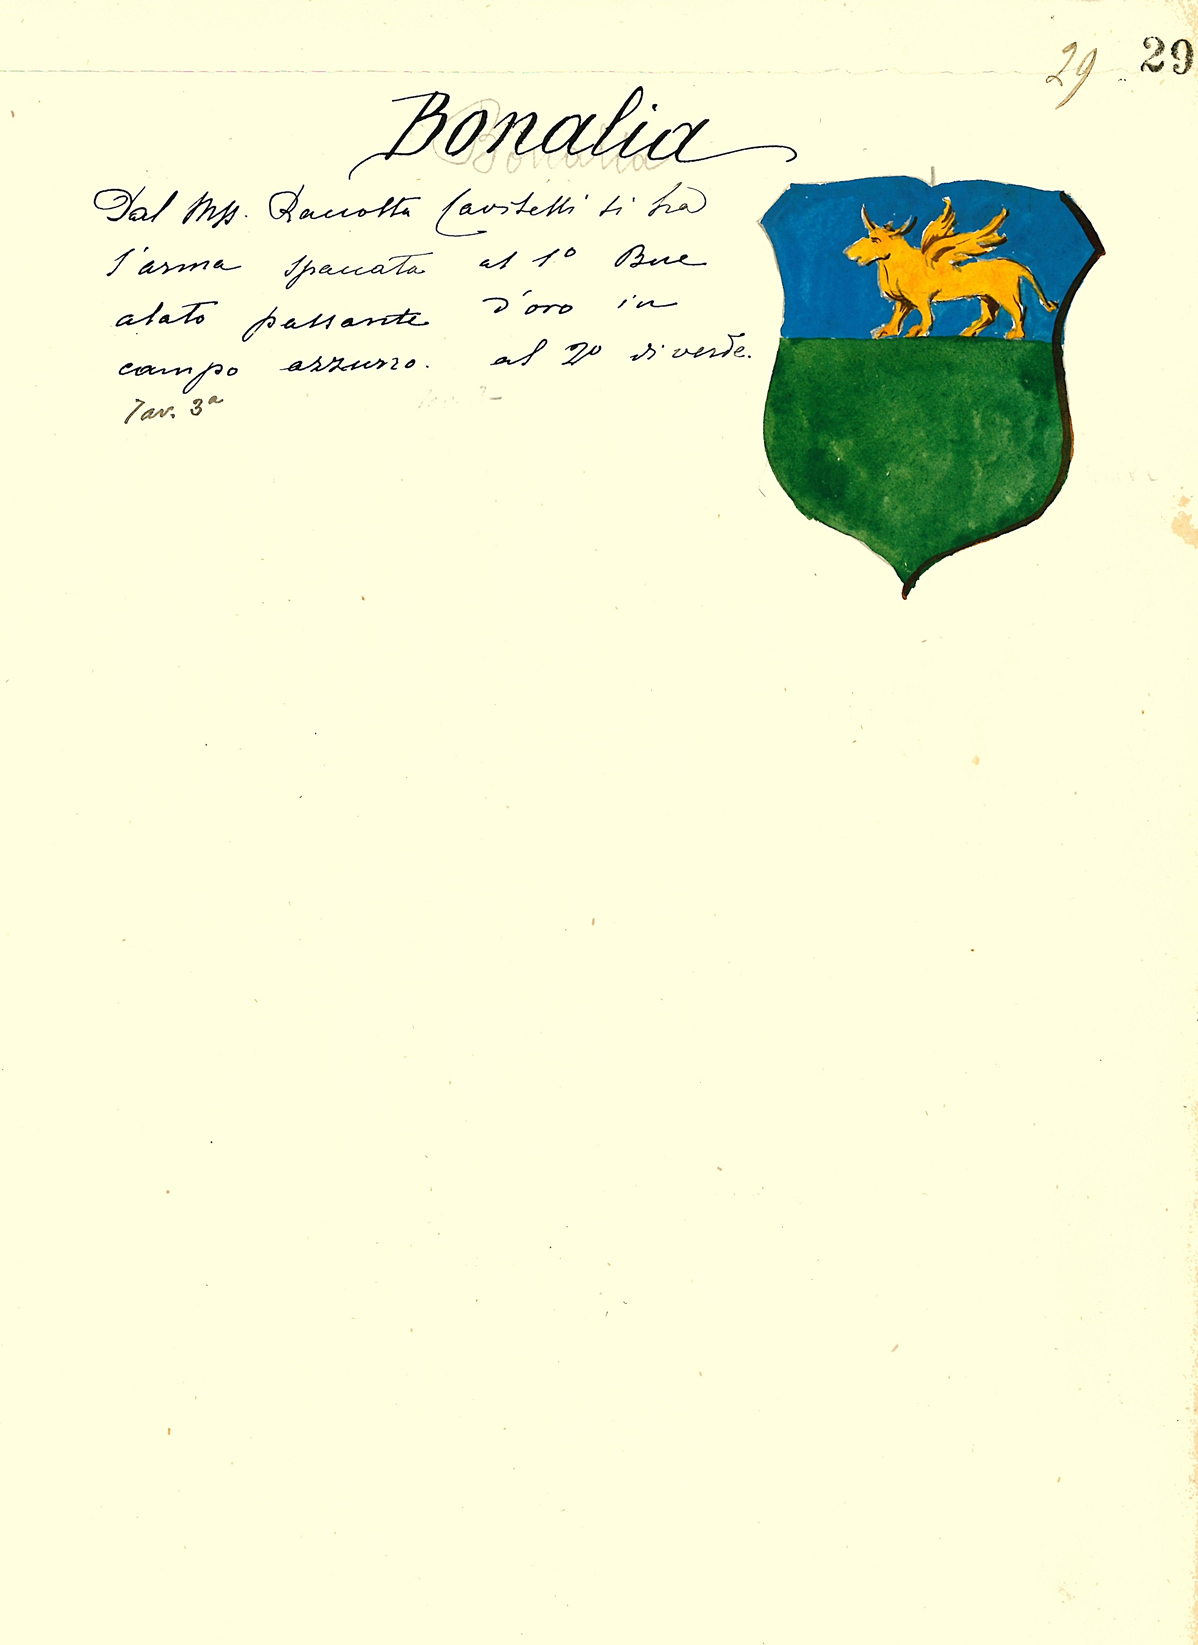 29 29
Bonalia
Dal Mss. Raccolta Cavitelli si ha
l'arma spaccata al 1º Bue
alato passante d'oro in
campo azzurro. al 2º di verde.
Tav. 3ª